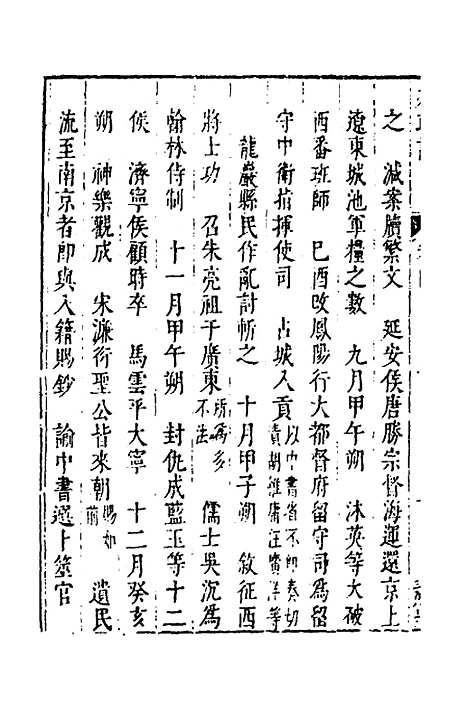 之　減案牘繁文　延安侯唐勝宗督海運還京上
遼東城池軍糧之數　九月甲午朔　沐英等大破
西番班師　巳酉改鳳陽行大都督府留守司為留
守中衛指揮使司　占城入貢以中書省不卽奏切責胡惟庸汪廣洋等
龍巖縣民作亂討斬之　十月甲子朔　敘征西
將士功　召朱亮祖于廣東所為多不法　儒士吳沉為
翰林侍制　十一月甲午朔　封仇成藍玉等十二
侯　濟寧侯顧時卒　馬雲平大寧　十二月癸亥
朔　神樂觀成　宋濂衍聖公皆來朝賜如前　遺民
流至南京者卽與入籍賜鈔　諭中書選卜筮官